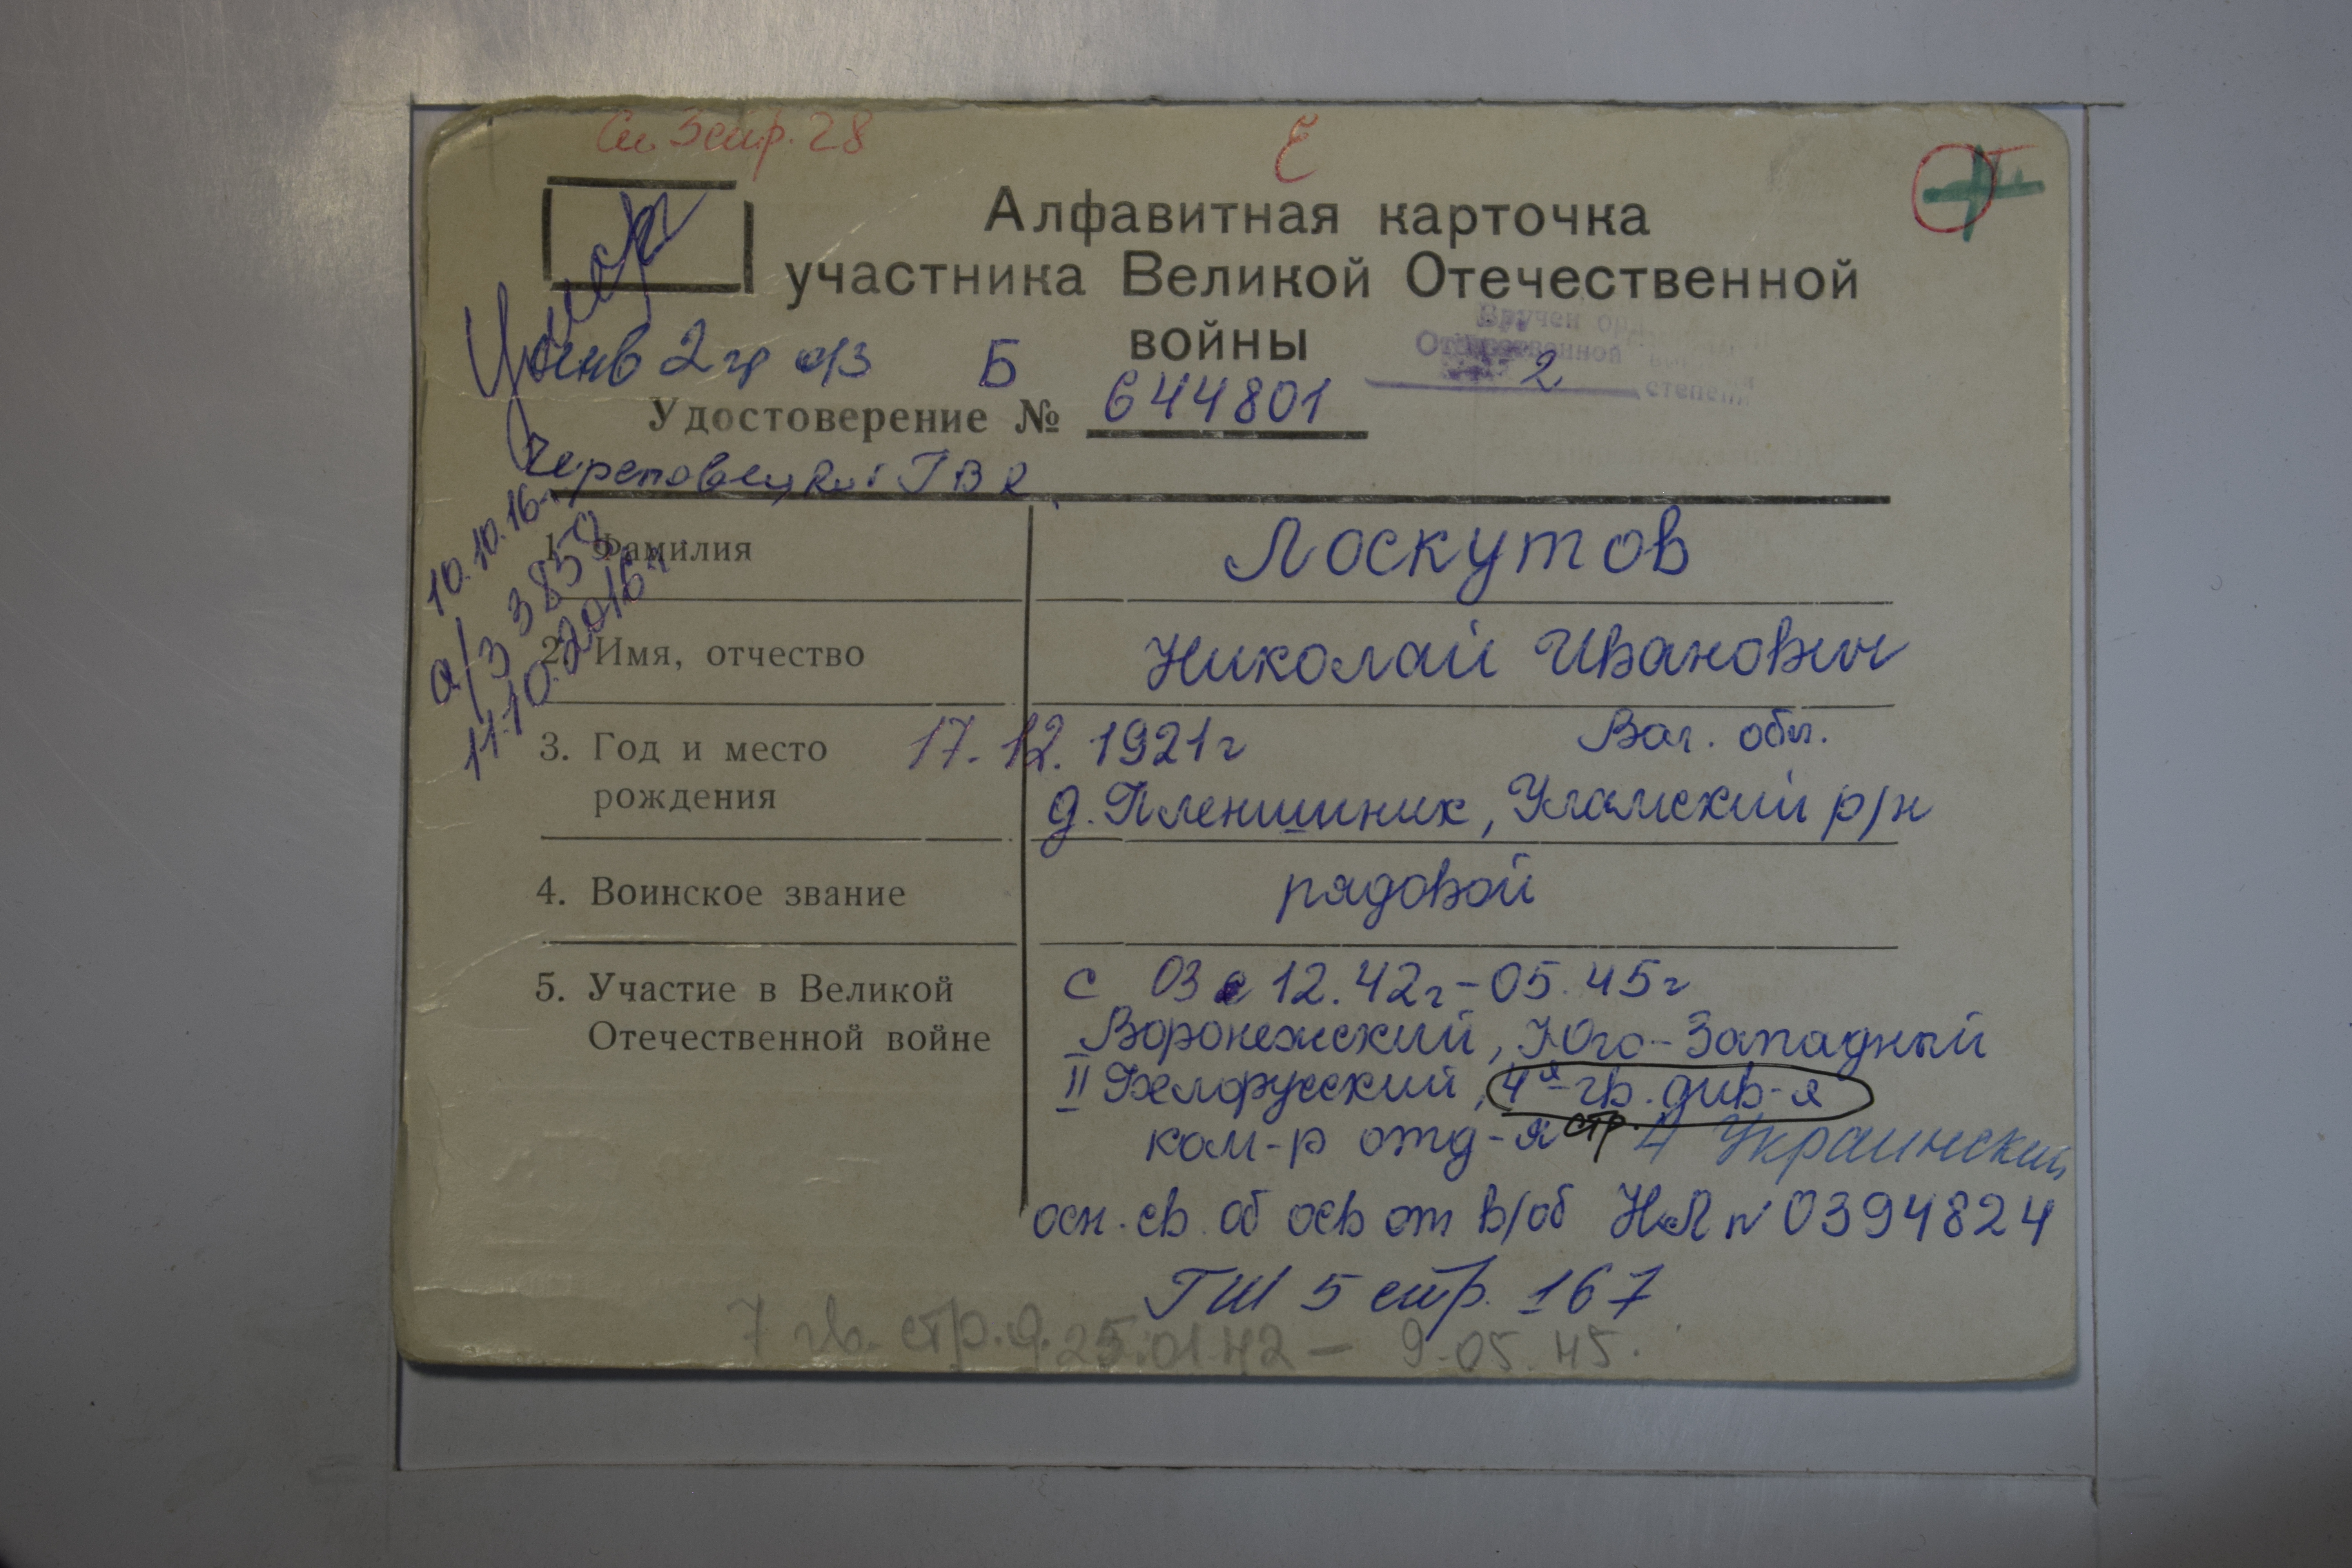 Сп. 3 стр. 28
Е
Алфавитная карточка
участника Великой Отечественной
войны
Умер
инв 2 гр о/з Б
Вручен орд
Отечественной войны
2 степени
Удостоверение № 644801
Череповецкий ГВК
10.10.16
а/з 3850
11.10.2016 г.
1. Фамилия
Лоскутов
2. Имя, отчество
Николай Иванович
3. Год и место
рождения
17.12.1921г
Вол. обл.
д. Пленишник, Уломский р/н
4. Воинское звание
рядовой
5. Участие в Великой
Отечественной войне
с 03 12.42г - 05.45г
Воронежский, Юго-Западный
II Белорусский, 4я гв. див-я
ком-р отд-я стр. 4 Украинский
осн. св. об осв от в/об НЛ № 0394824
ГШ 5 стр. 167
7 гв. стр. д. 25.01.42 - 9.05.45.